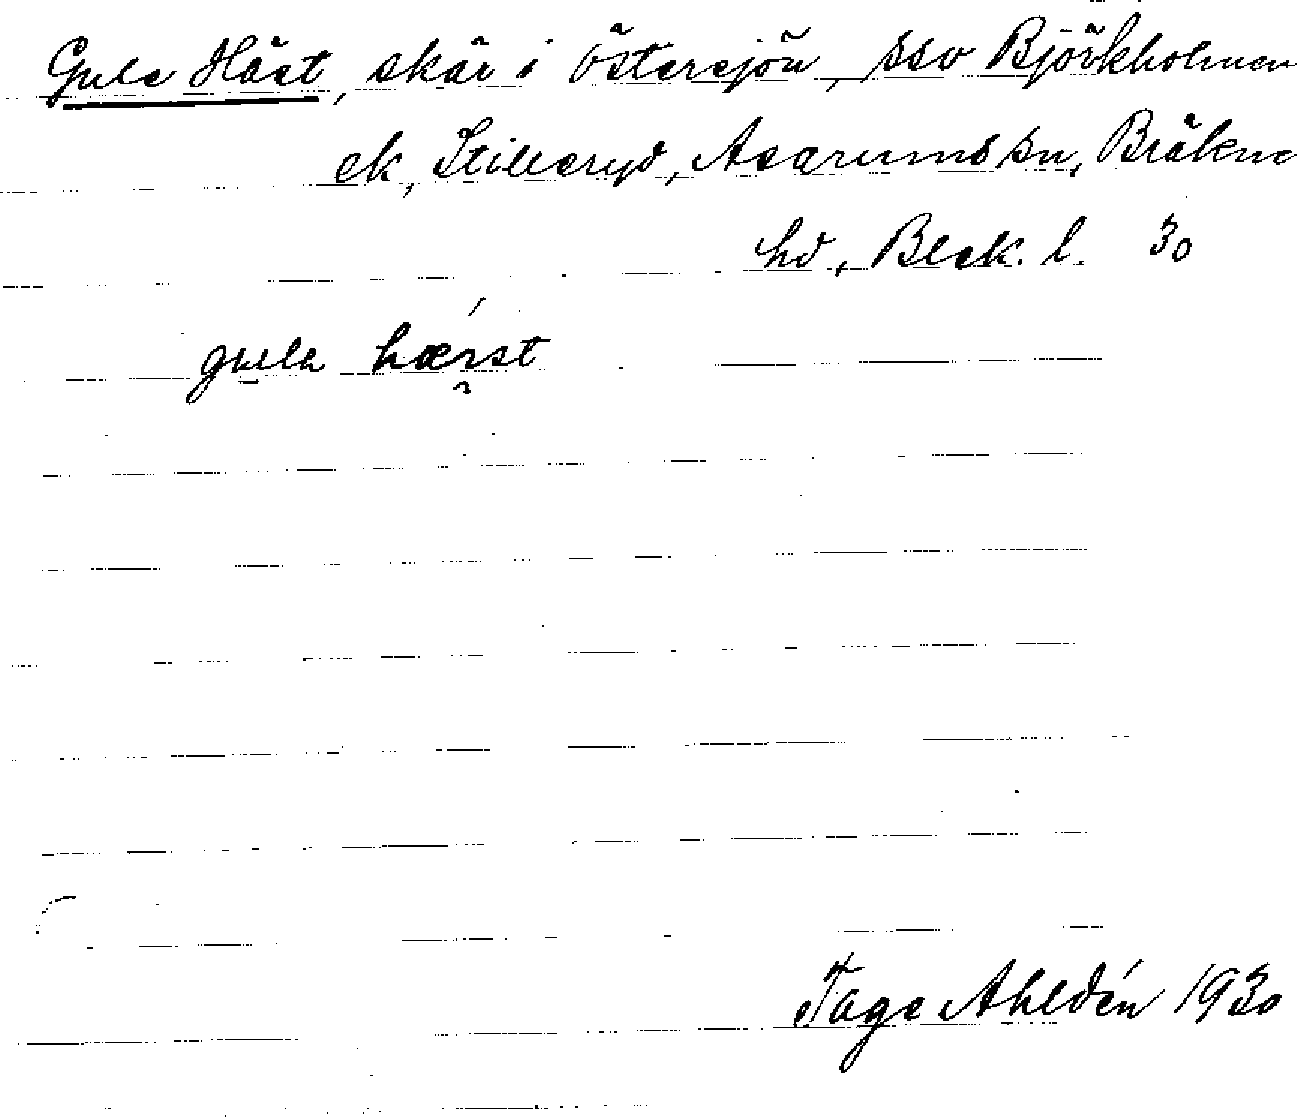 Gula Häst, skär i Östersjön, SSV Björkholmen
ek, Stilleryd, Asarums sn, Bräkne
hd, Blek. l. 30
gula hærst
Tage Ahldén 1930